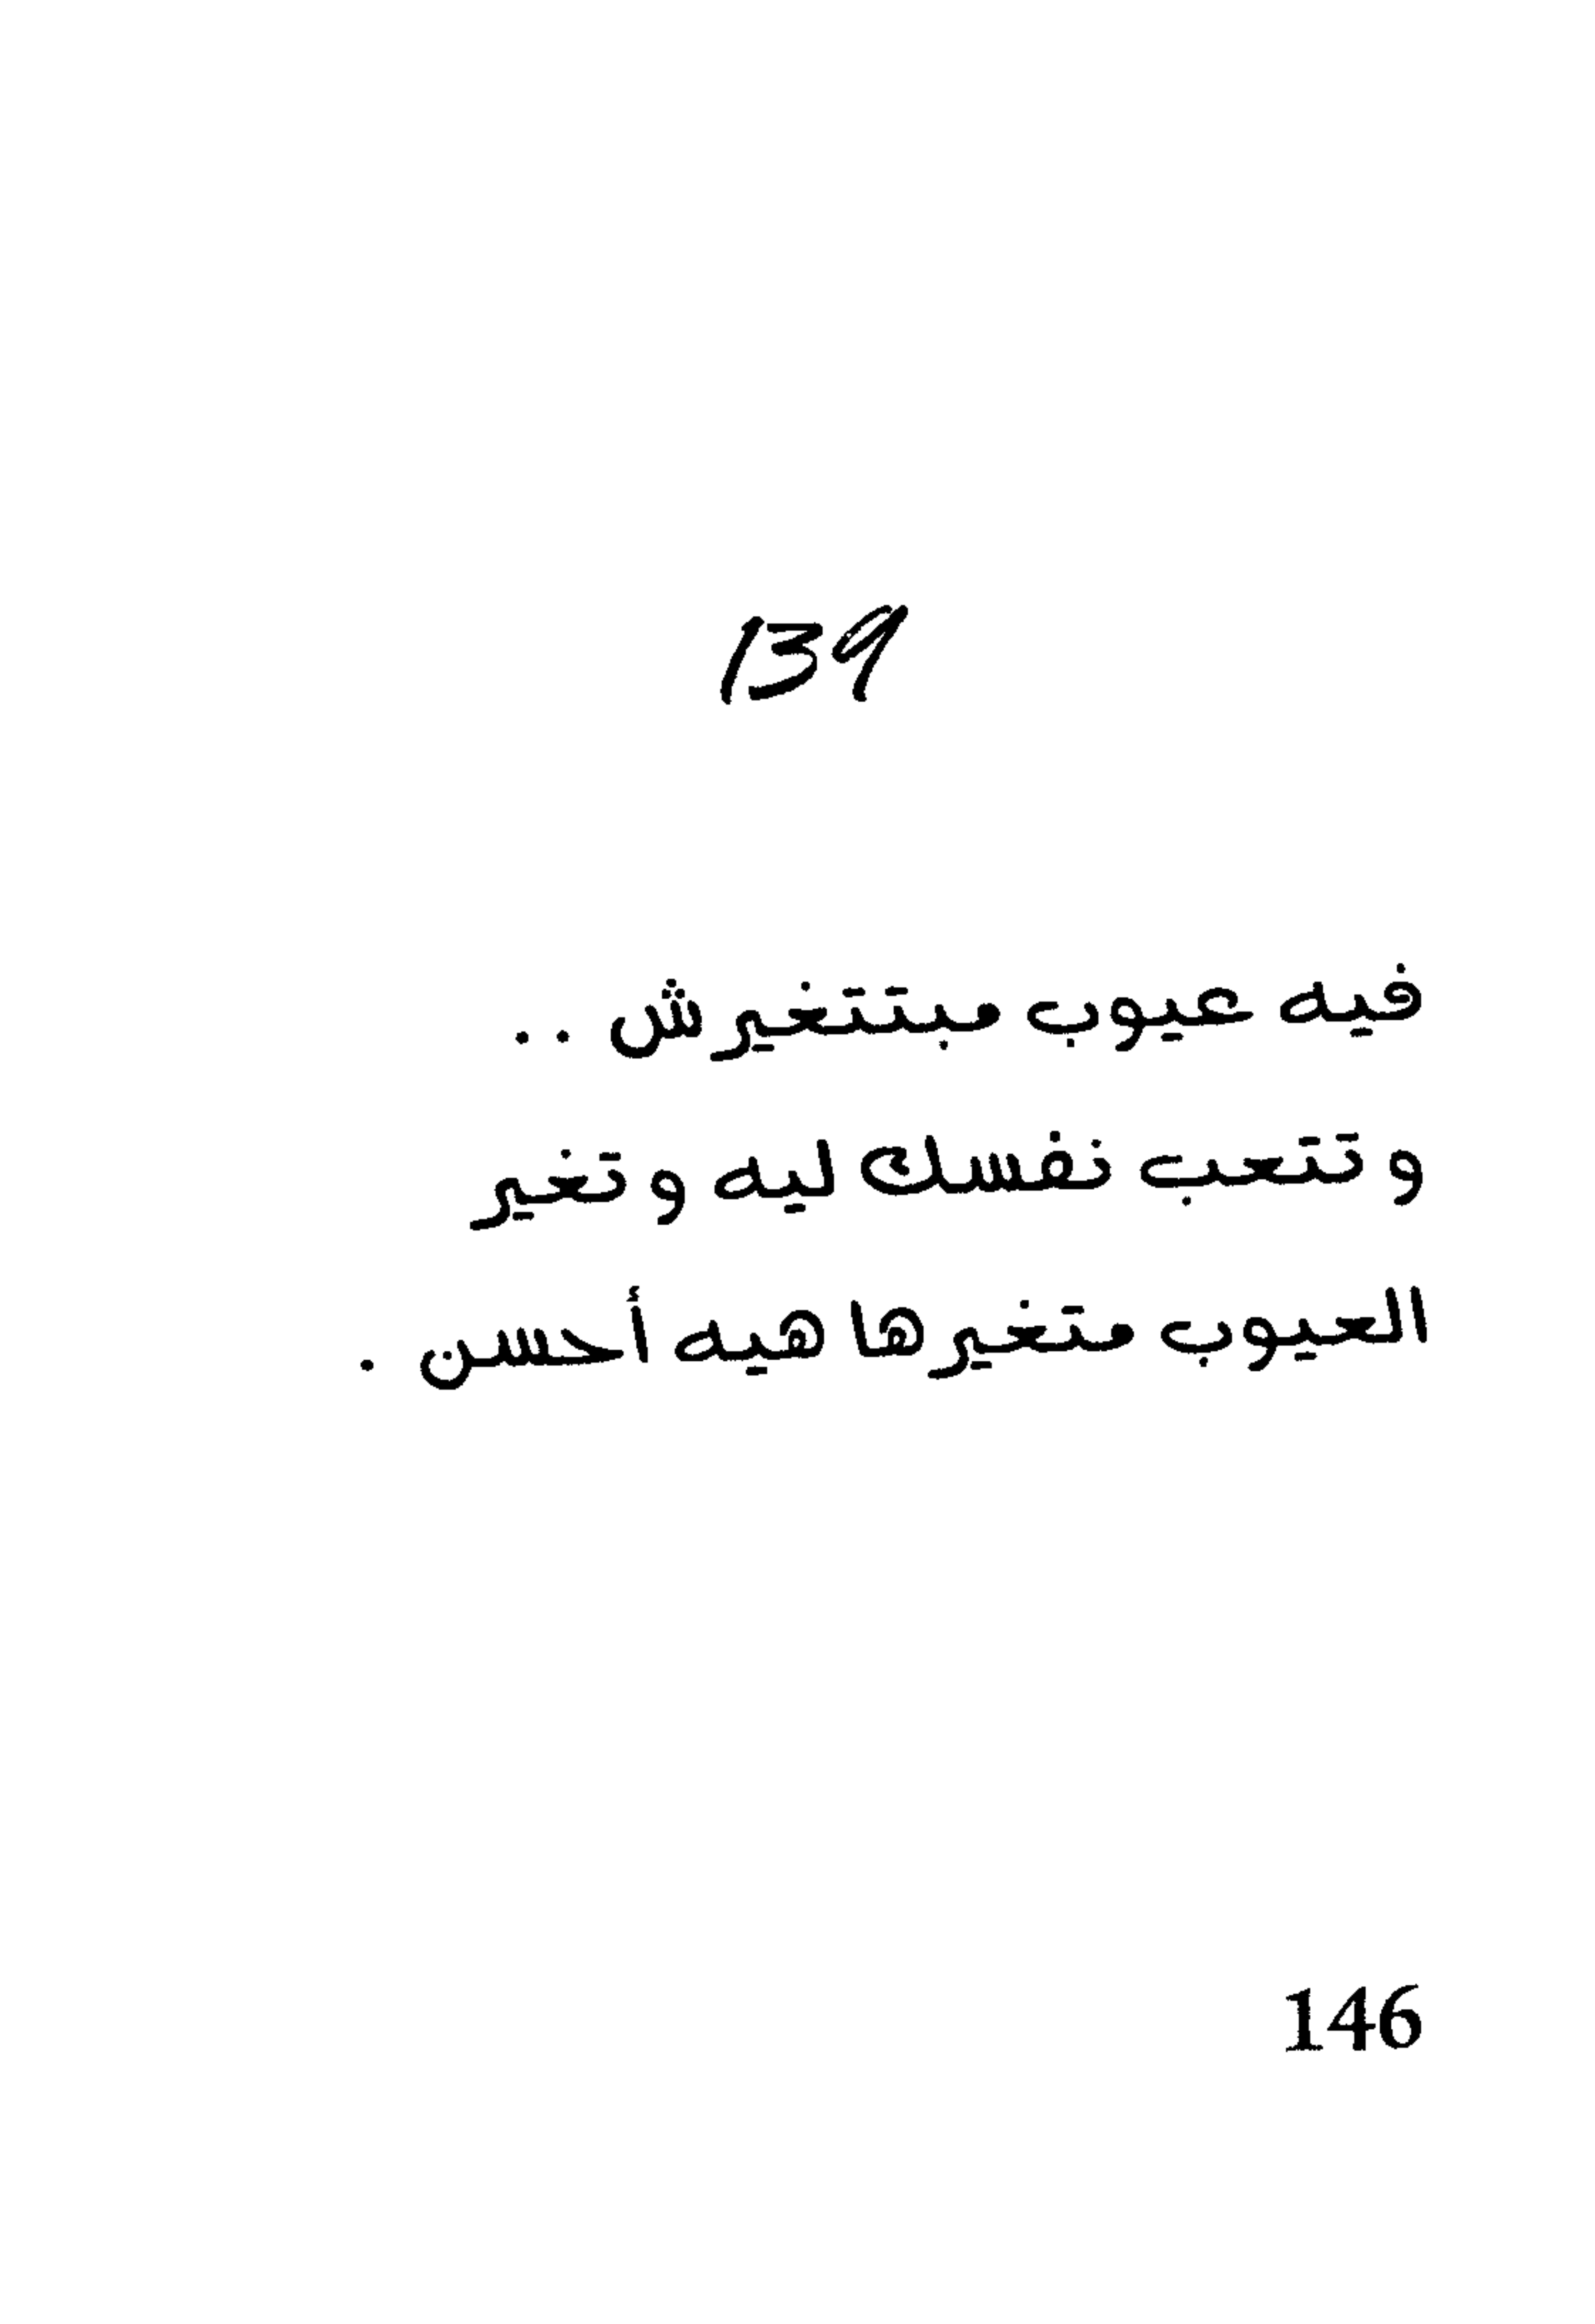 139
فيه عيوب مبتتغيرش ..
و تتعب نفسك ليه و تغير
العيوب متغيرها هيه أحسن .
146